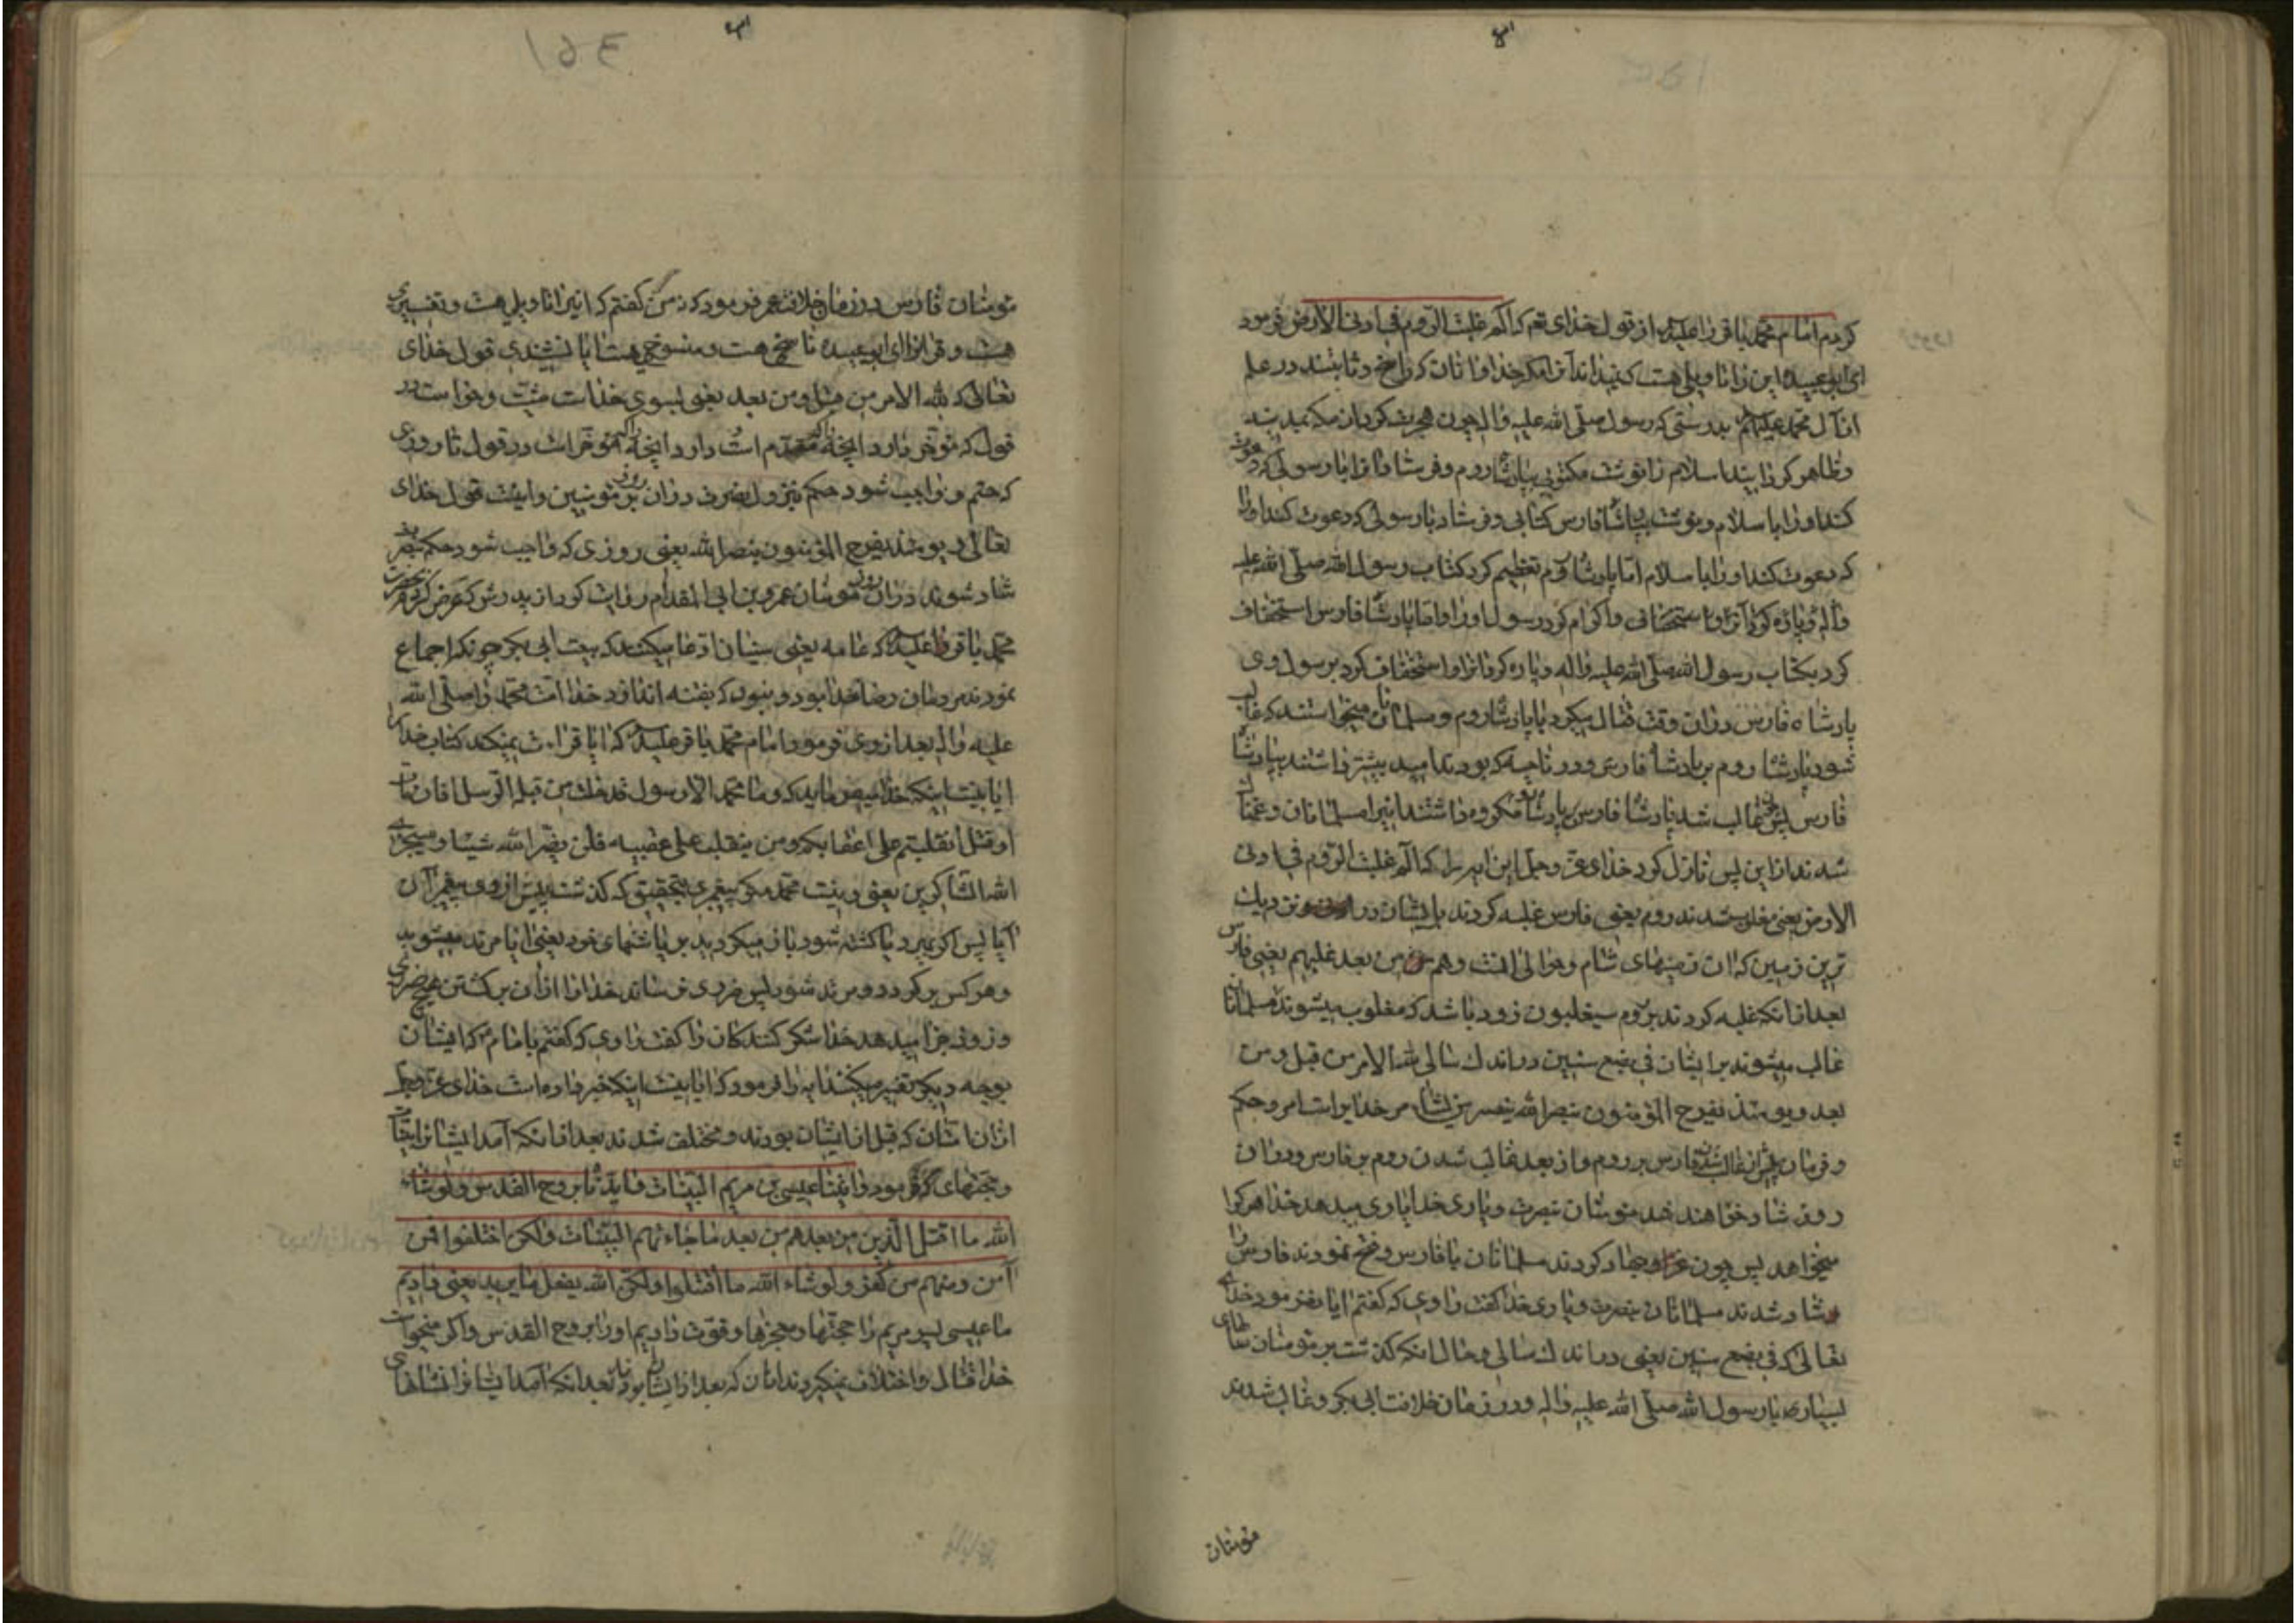 کردم امام محمد باقر را علیه السلام از قول خدای تعم که الم غلبت الروم فی ادنی الارض فرمود
ای ابو عبیده این را تاویلی هست که نمیداند آنرا مگر خدا و انان که راسخ و ثابتند در علم
از آل محمد علیهم بدرستی که رسول صلی الله علیه واله چون هجرت کرد از مکه بمدینه
و ظاهر گردانید اسلام را نوشت مکتوبی بپادشاه روم و فرستاد انرا با رسولی که دعوت
کند او را باسلام و نوشت بپادشاه فارس کتابی و فرستاد با رسولی که دعوت کند او را
که دعوت کند او را باسلام اما پادشاه روم تعظیم کرد کتاب رسول الله صلی الله علیه
واله و اکرام کرد رسول او را و اما پادشاه فارس استخفاف
کرد بکتاب رسول الله صلی الله علیه واله و پاره کرد انرا و استخفاف کرد برسول وی
پادشاه فارس در ان وقت قتال میکرد با پادشاه روم و مسلمانان میخواستند که غالب
شود پادشاه روم بر پادشاه فارس و در ناحیه که بودند امید بیشتر داشتند بپادشاه
فارس پس چون غالب شد پادشاه فارس بپادشاه روم مکروه داشتند انیرا مسلمانان و غمناک
شدند ازاین پس نازل کرد خدای عز و جل این ایه را که الم غلبت الروم فی ادنی
الارض یعنی مغلوب شدند روم یعنی فارس غلبه کردند بایشان در نزدیک
ترین زمین که ان زمینهای شام و حوالی انست وهم من بعد غلبهم یعنی فارس
بعد از انکه غلبه کردند بروم سیغلبون زود باشد که مغلوب میشوند مسلمانان
غالب میشوند بر ایشان فی بضع سنین در اندک سالی لله الامر من قبل و من
بعد و یومئذ یفرح المؤمنون بنصر الله ینصر من یشاء مر خدایراست امر و حکم
و فرمان پیش از غالب شدن فارس بر روم و از بعد غالب شدن روم بر فارس و در ان
روز شاد خواهند شد مومنان بنصرت و یاری خدا یاری میدهد خدا هر کرا
میخواهد پس چون غزا و جهاد کردند مسلمانان با فارس و فتح نمودند فارس را
و شاد شدند مسلمانان بنصرت و یاری خدا گفت راوی که گفتم ایا نفرمود خدای
تعالی که فی بضع سنین یعنی در اندک سالی و حال انکه گذشت بر مومنان سالهای
بسیار با رسول الله صلی الله علیه واله و در زمان خلافت ابی بکر و غالب شدند
مومنان
مومنان فارس در زمان خلافت عمر فرمود که نه من گفتم که انیرا تاویلی هست و تفسیری
هست و قرانرا ای ابو عبیده ناسخی هست و منسوخی هست ایا نشنیدی قول خدای
تعالی که لله الامر من قبل و من بعد یعنی بسوی خداست مشیت و خواست در
قول که مؤخر دارد انچه را که مقدم است و دارد انچه را که مؤخر است در قول تا روزی
که حتم و واجب شود حکم بنزول نصرت در ان روز بر مومنین و اینست قول خدای
تعالی و یومئذ یفرح المؤمنون بنصر الله یعنی روزی که واجب شود حکم بنصر
شاد شوند در ان روز مومنان عمرو بن ابی المقدام روایت کرد از پدرش که عرض کردم حضرت
محمد باقر را علیه السلام که عامه یعنی سنیان ادعا میکنند که بیعت ابی بکر چونکه اجماع
نمودند مردمان رضا خدا بود و نبود که بفتنه اندازد خدا امت محمد را صلی الله
علیه واله بعد از وی فرمود امام محمد باقر علیه السلام که ایا قراءت نمیکند کتاب خدا را
ایا نیست اینکه خدا میفرماید که وما محمد الا رسول قد خلت من قبله الرسل افان مات
او قتل انقلبتم علی اعقابکم ومن ینقلب علی عقبیه فلن یضر الله شیئا وسیجزی
الله الشاکرین یعنی و نیست محمد مگر پیغمبری بتحقیق که گذشت پیش از وی پیغمبران
آیا پس اگر بمیرد یا کشته شود باز میگردید بر پاشنهای خود یعنی ایا مرتد میشوید
و هر کس برگردد و مرتد شود پس ضرری نرساند خدا را از ان برگشتن هیچ ضرری
و زود جزا میدهد خدا شکر کنندگان را گفت راوی که گفتم بامام که ایشان
بوجه دیگر تفسیر میکنند ایه را فرمود که ایا نیست اینکه خبر داده است خدای عز و جل
از ان امتان که قبل از ایشان بودند و مختلف شدند بعد از انکه آمد ایشانرا
و حجتهای که فرمود واتینا عیسی بن مریم البینات وایدناه بروح القدس ولو شاء
الله ما اقتتل الذین من بعدهم من بعد ما جاءتهم البینات ولکن اختلفوا فمن
آمن ومنهم من کفر ولو شاء الله ما اقتتلوا ولکن الله یفعل ما یرید یعنی دادیم
ما عیسی پسر مریم را حجتها و معجزها و قوت دادیم او را بروح القدس و اگر میخواست
خدا قتال و اختلاف نمیکردند انان که بعد از ایشان بودند بعد انکه آمد ایشانرا نشانهای